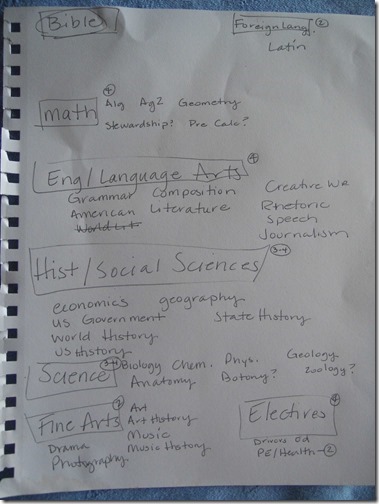 Bible
Foreign Lang. 2
Latin
Math 4
Alg Ag2 Geometry
Stewardship? Pre Calc?
Eng/Language Arts 4
Grammar Composition Creative Wr
American Literature Rhetoric
World Lit Speech
Journalism
Hist/Social Sciences 3-4
economics geography
US Government State History
World History
US History
Science 3-4 Biology Chem. Phys. Geology
Anatomy Botony? Zoology?
Fine Arts
Art
Art History
Music
Music History
Drama
Photography
Electives 4
Drivers Ed
PE/Health-2